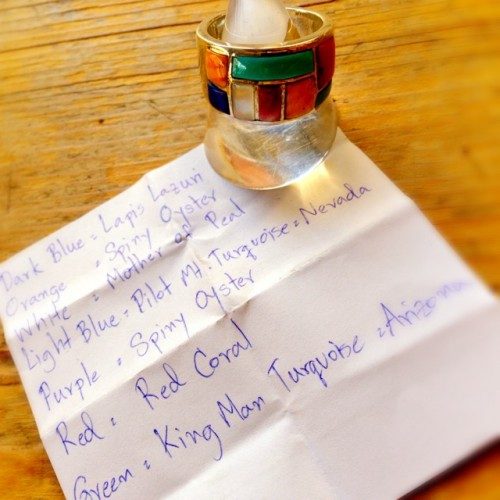 Dark Blue = Lapis Lazuri
Orange = Spiny Oyster
White = Mother of Peal
Light Blue = Pilot Mt. Turquoise = Nevada
Purple = Spiny Oyster
Red = Red Coral
Green = King Man Turquoise = Arizona